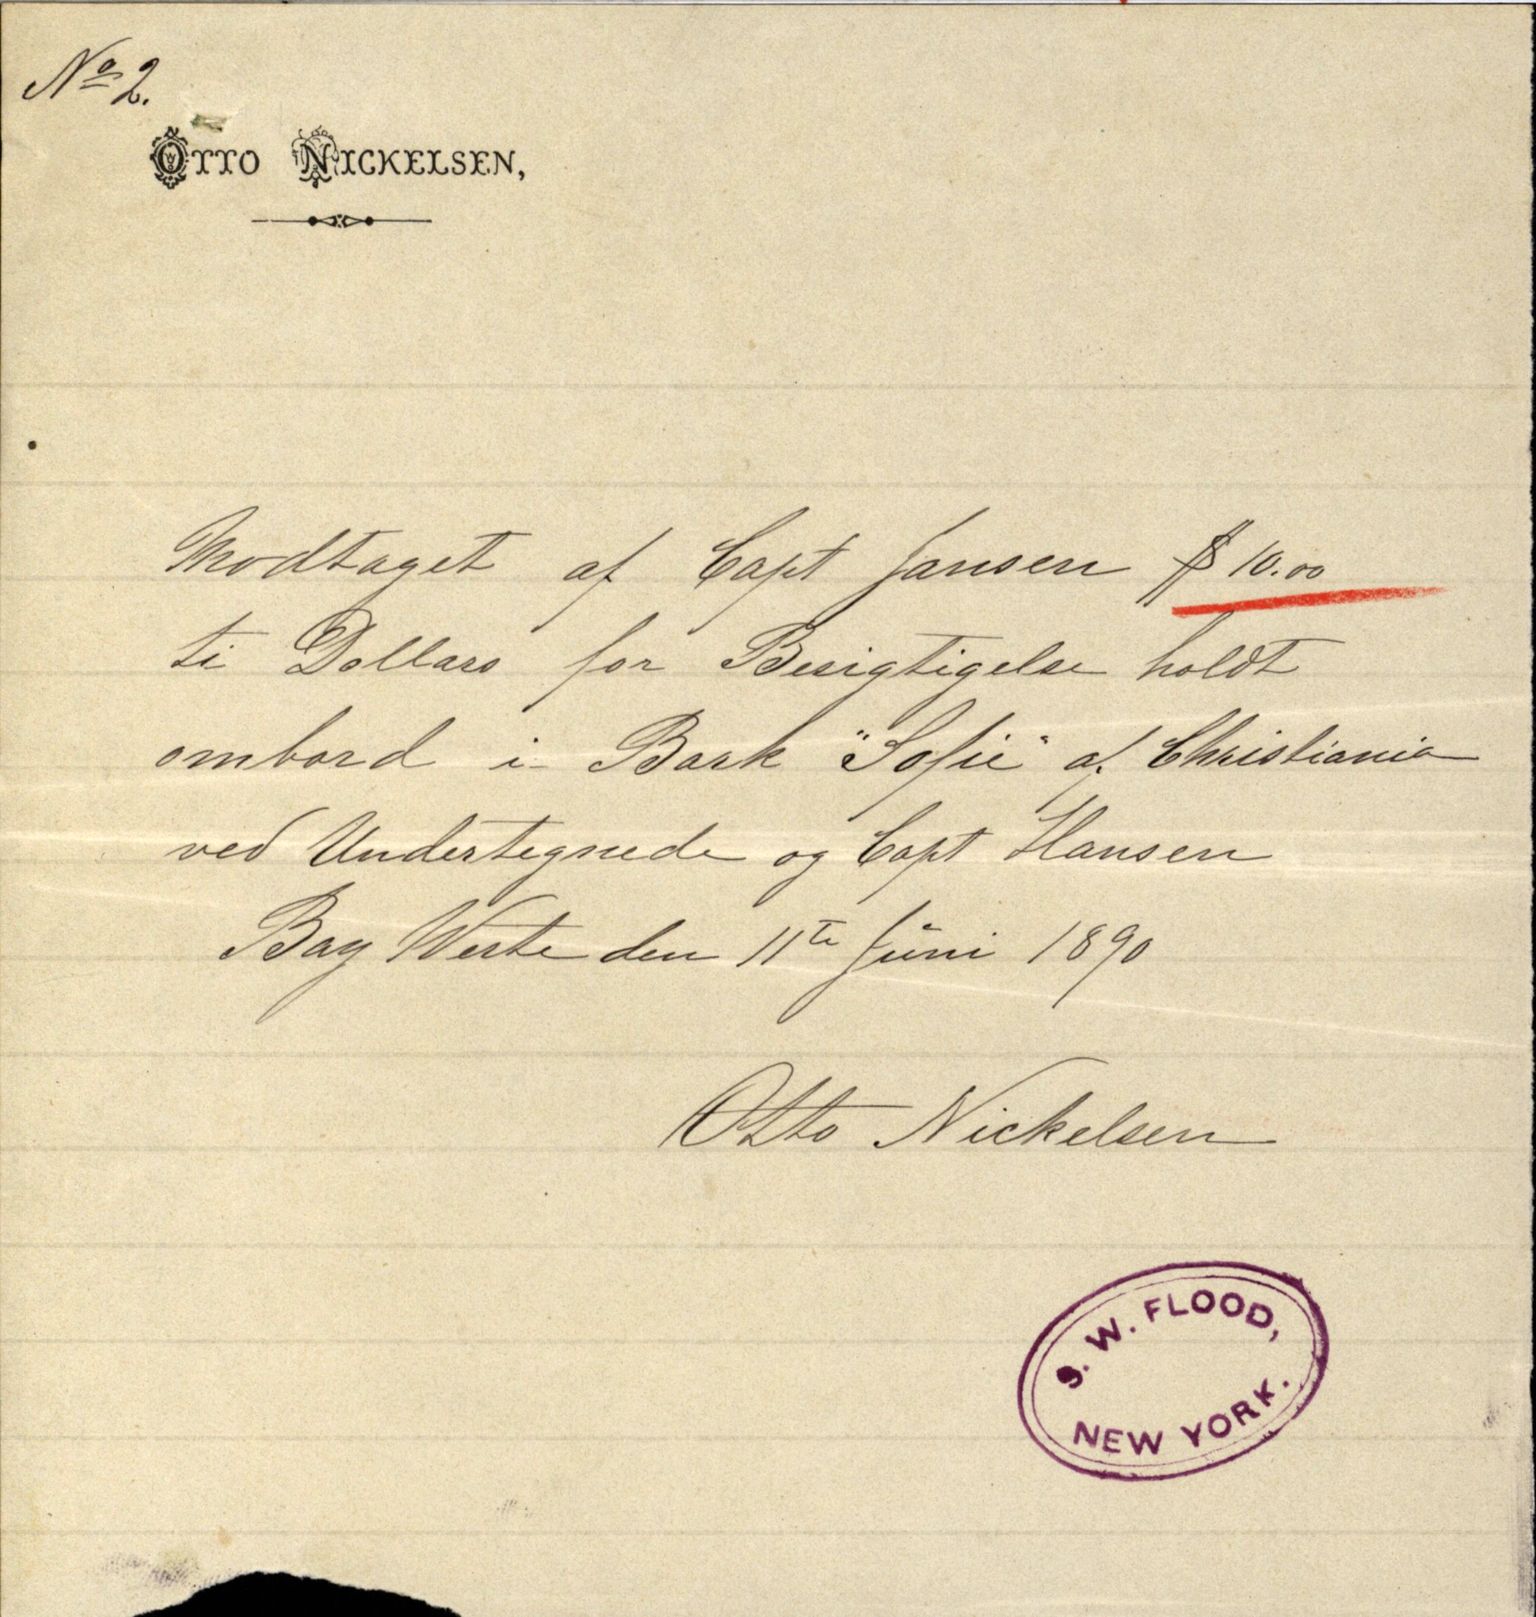 No 2.
OTTO NICKELSEN,
Modtaget af Capt Jansen $ 10.00
ti Dollars for Besigtigelse holdt
ombord i Bark "Sofie" af Christiania
ved Undertegnede og Capt Hansen
Bay Verte den 11te Juni 1890
Otto Nickelsen
S. W. FLOOD,
NEW YORK.